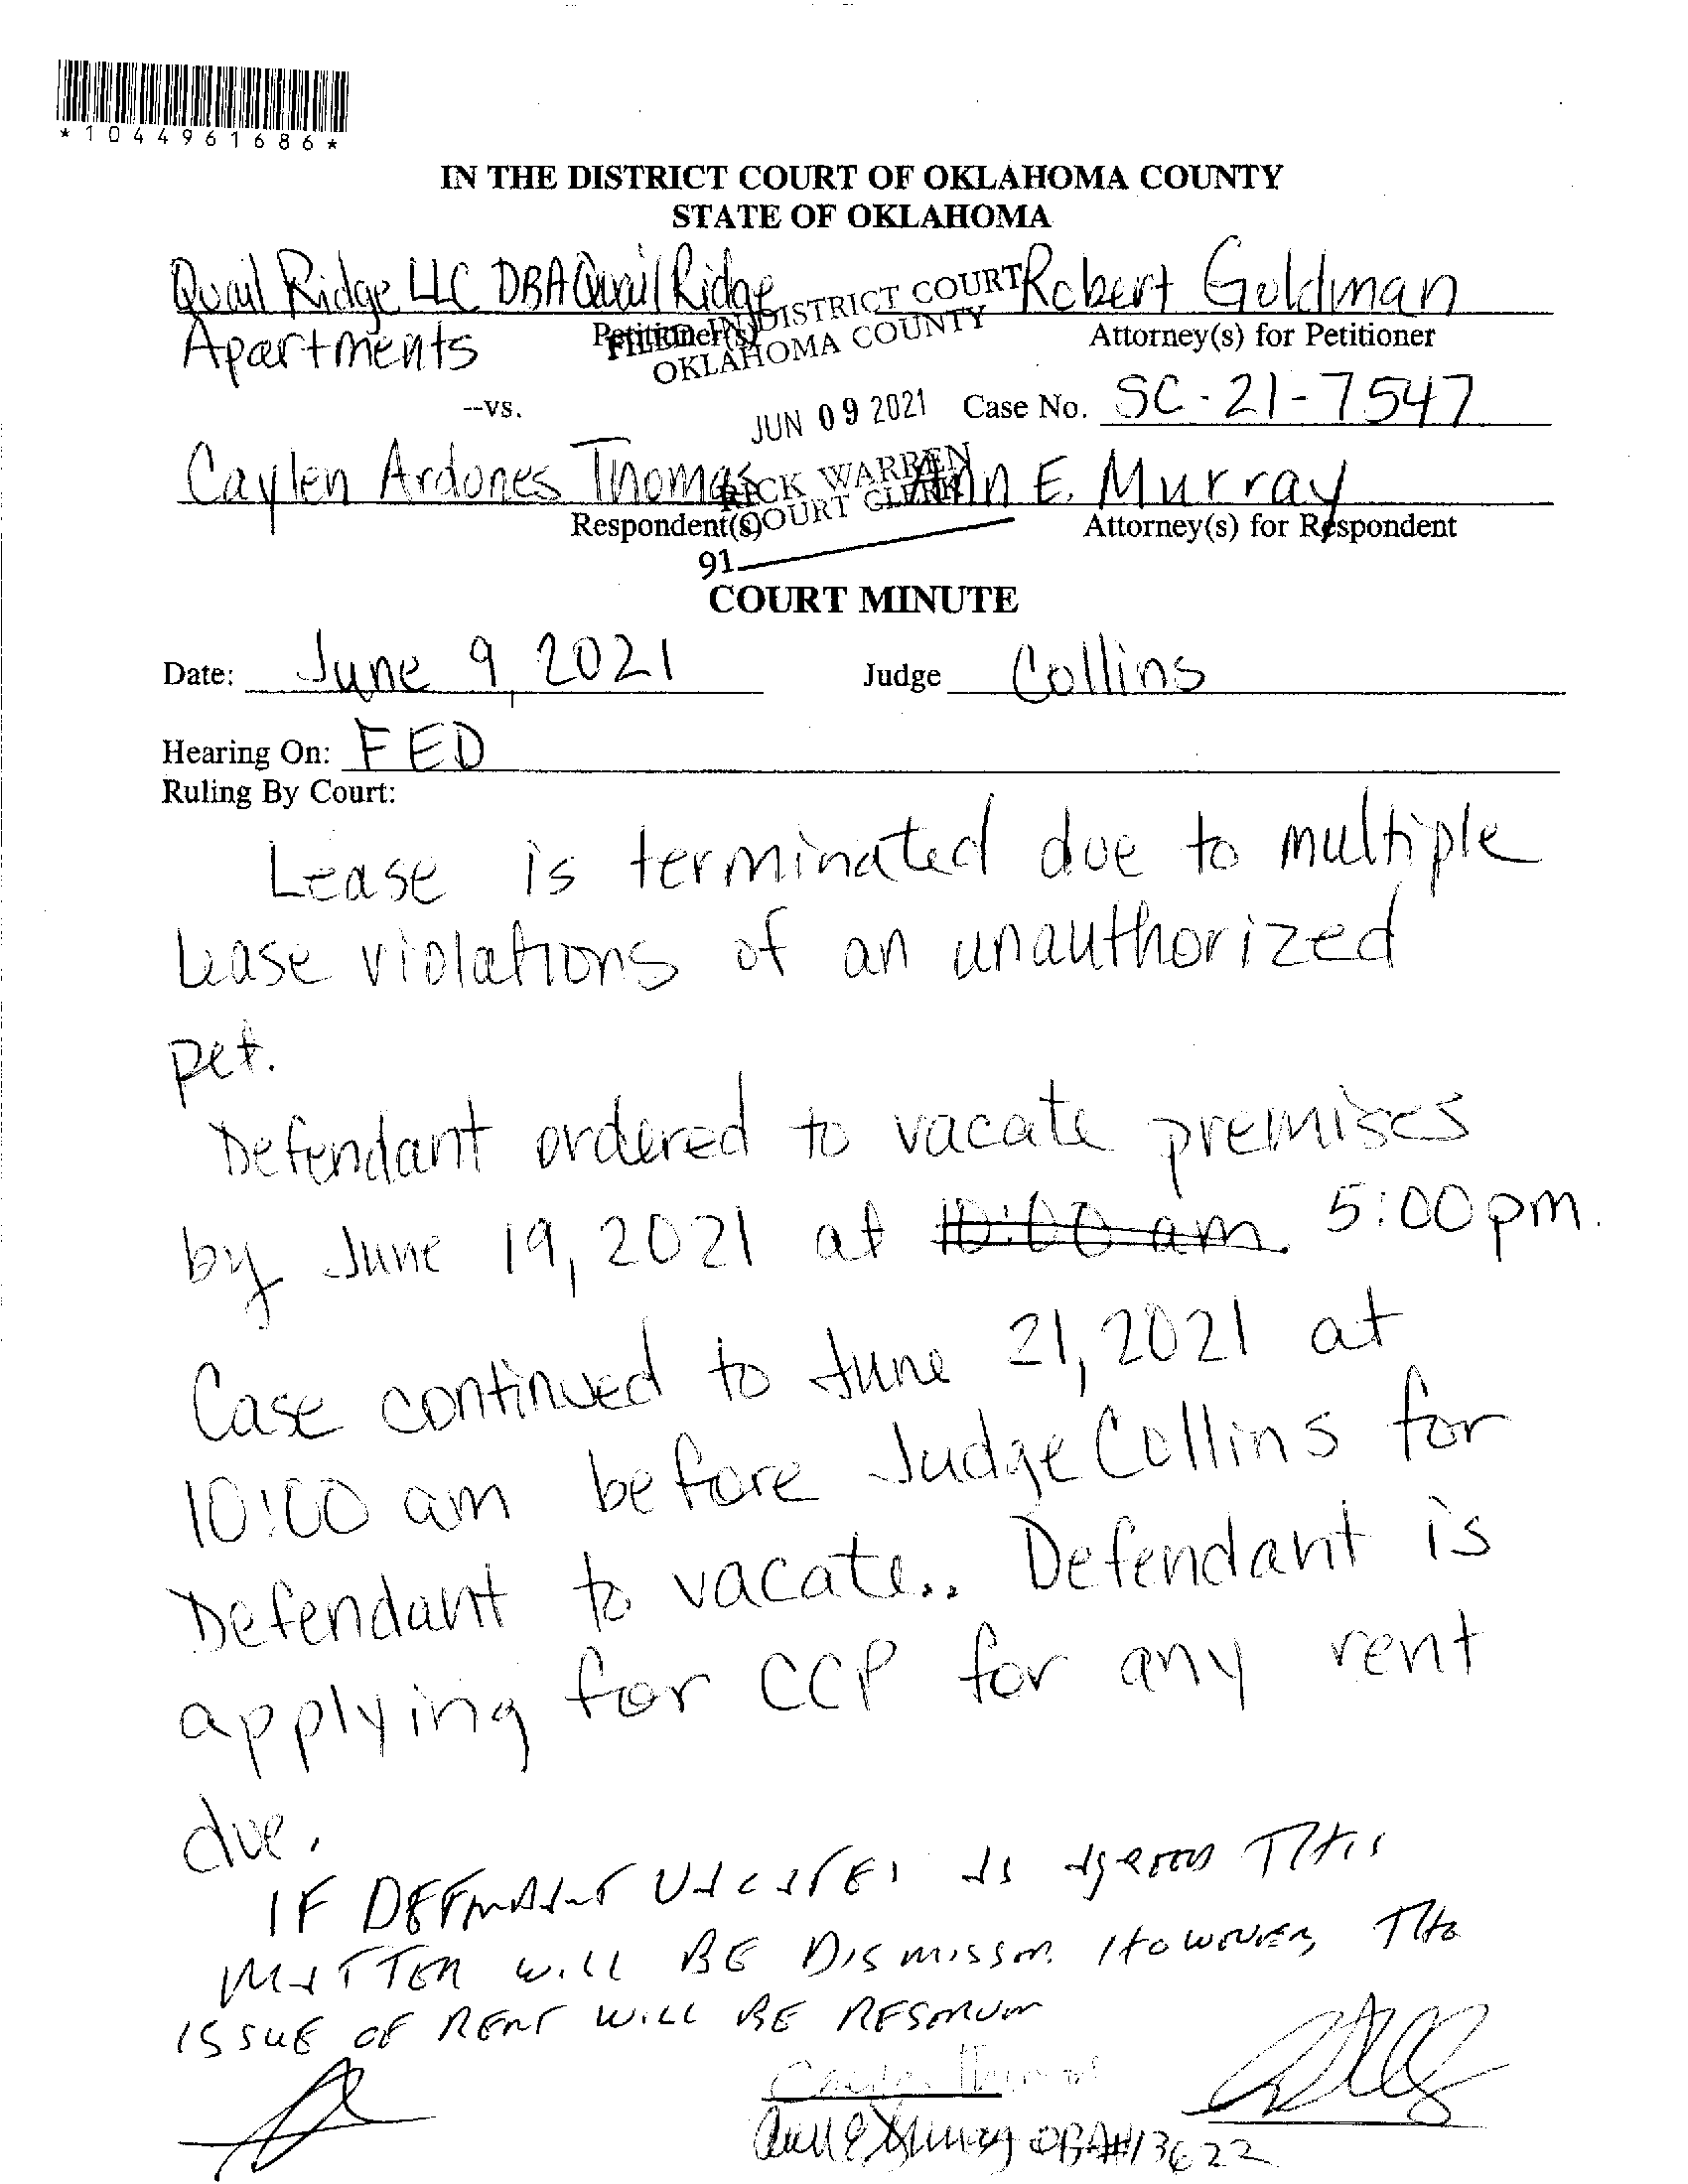 *1044961686*
IN THE DISTRICT COURT OF OKLAHOMA COUNTY
STATE OF OKLAHOMA
Quail Ridge LLC DBA Quail Ridge
Apartments
Petitioner(s)
Robert Goldman
Attorney(s) for Petitioner
FILED IN DISTRICT COURT
OKLAHOMA COUNTY
--vs.
JUN 09 2021
Case No. SC-21-7547
Caylen Ardones Thomas
Respondent(s)
RICK WARREN
COURT CLERK
91
Ann E. Murray
Attorney(s) for Respondent
COURT MINUTE
Date: June 9, 2021
Judge Collins
Hearing On: FED
Ruling By Court:
Lease is terminated due to multiple
lease violations of an unauthorized
pet.
Defendant ordered to vacate premises
by June 19, 2021 at 10:00 am. 5:00pm.
Case continued to June 21, 2021 at
10:00 am before Judge Collins for
Defendant to vacate.. Defendant is
applying for CCP for any rent
due.
IF DEFENDANT VACATES AS AGREED THIS
MATTER WILL BE DISMISSED. HOWEVER, THE
ISSUE OF RENT WILL BE RESERVED
OBA#13622